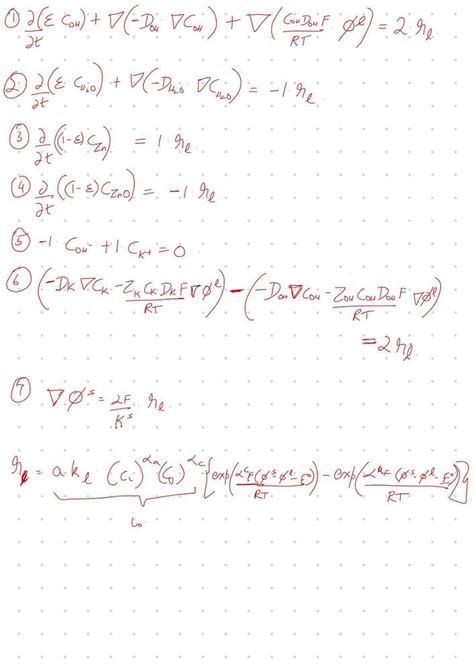 ① ∂/∂t (ε C_OH) + ∇(-D_OH ∇C_OH) + ∇(C_OH D_OH F / RT ∅^l) = 2 r_l
② ∂/∂t (ε C_H₂O) + ∇(-D_H₂O ∇C_H₂O) = -1 r_l
③ ∂/∂t ((1-ε)C_Zn) = 1 r_l
④ ∂/∂t ((1-ε)C_ZnO) = -1 r_l
⑤ -1 C_OH⁻ + 1 C_K+ = 0
⑥ (-D_K ∇C_K - Z_K C_K D_K F / RT ∇∅^l) - (-D_OH ∇C_OH - Z_OH C_OH D_OH F / RT ∇∅^l)
= 2 r_l
⑦ ∇∅^s = 2F / K^s r_l
r_l = a k_l (C_i)^αa (C_j)^αc {exp(α^c F(∅^s-∅^l-E°) / RT) - exp(α^a F(∅^s-∅^l-E°) / RT)}
i₀